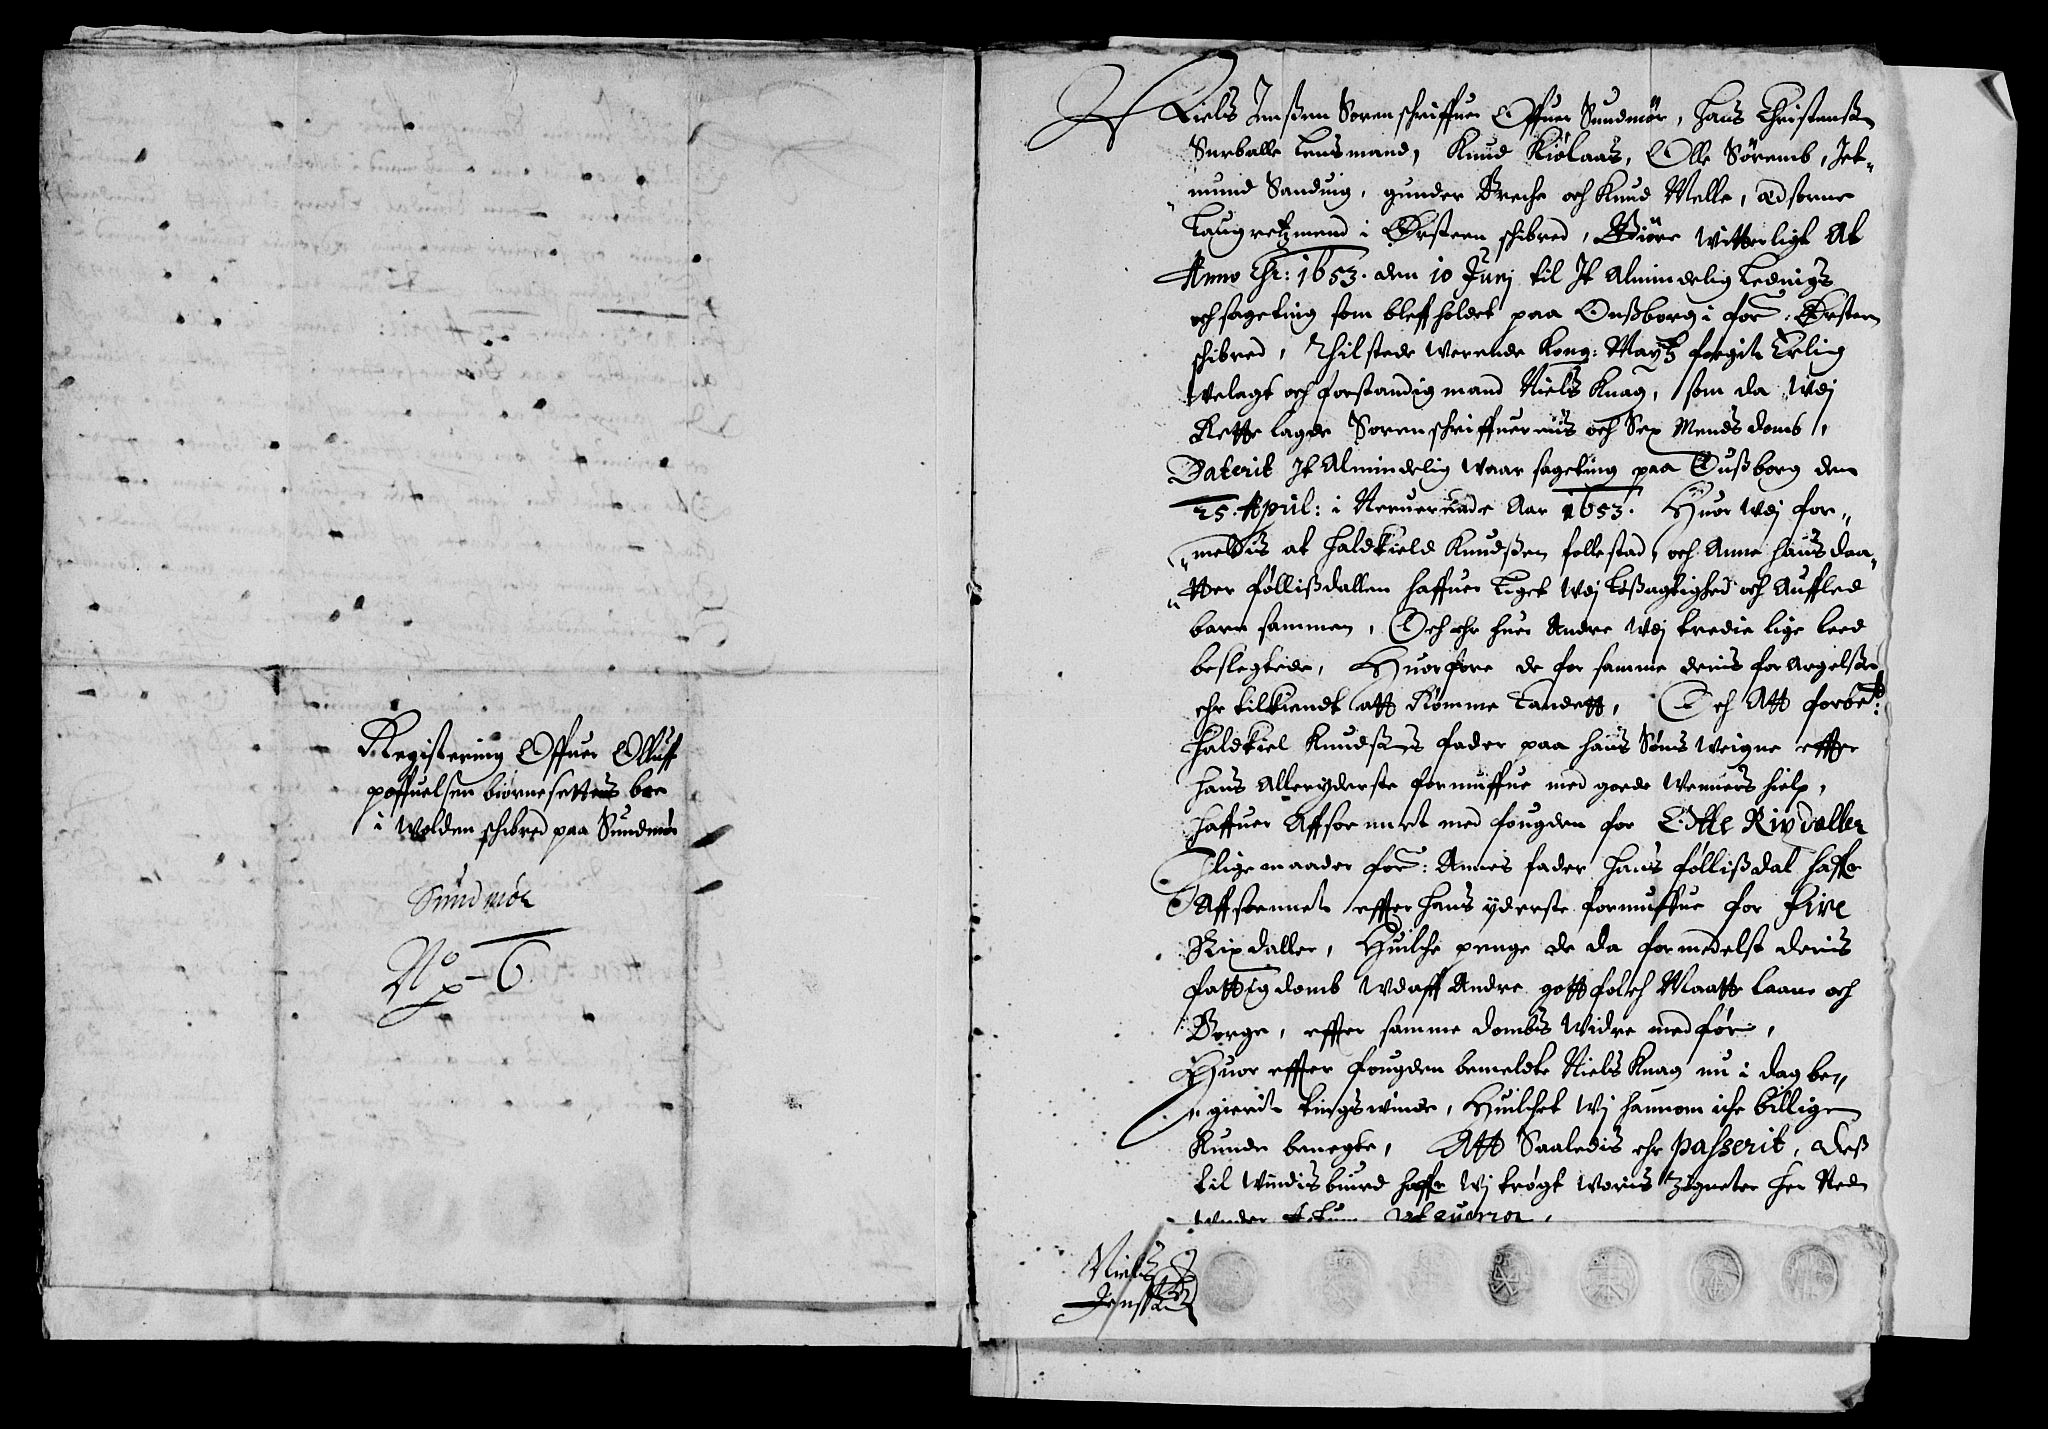 Registering Offuer Olluff
poffuelsen biørnesettes boe
i Wolden schibred paa Sundmør
Sundmør
No 6
Niels Jenssen Sorenschriffuer Offuer Sundmør, Hans Christensen
Surballe Lensmand, Knud Kiølaas, Olle Søremb, Jet-
mund Sanduig, gunder Breche och Knud Melle, Edsorne
Laugretzmend i Ørsteen schibred, Giøre Witterligt At
Anno Chr: 1653. den 10 Junj til Jt Almindelig Lednigs
och sageting som bleff holdet paa Ousborg i for: Ørsteen
schibred, Thilstede werende Kong: Maytz fogit Erlig
Welagt och forstandig mand Niels Knag, som da Wdj
Rette lagde Sorenschriffuerens och Sex Mends domb,
Daterit Jt Almindelig Waar sageting paa Ousborg den
25. April: i Neruerende Aar 1653. Huor Wdj for-
meldis at Haldkield Knudssen follestad, och Anne Hans daa-
tter føllissdallen haffuer Liget Wdj Løsagtighed och Aufled
barn sammen, Och ehr huer Andre Wdj tredie lige leed
beslegtede, Huorfore de for samme deris forargelse
ehr tilkiendt att Rømme Landett, Och Att forbe:te
Haldkiel Knudsens fader paa hans Søns Weigne effter
hans Alleryderste formuffue med goede Wenners hielp,
haffuer Affsonnet med fougden for Otte Rixdaller
Jlige maader for: Annes fader Hans føllissdal haffr
Affsonnet effter hans yderste formuffue for Fire
Rixdaller, Huilche penge de da formedelst deris
fattigdomb Wdaff Andre gott folch Maatte laane och
Borge, effter samme dombs Widre medfør,
Huor effter fougden bemeldte Niels Knag nu i dag be-
gierit tingswinde, Huilchet Wj hannom iche billigen
Kunde benegte, Att Saaledis ehr passerit, Dess
til Windisbiurd haffr Wj trøgt Woris Zigneter her Neden
Wnder Actum Ut supra.
Niels
Jenssen